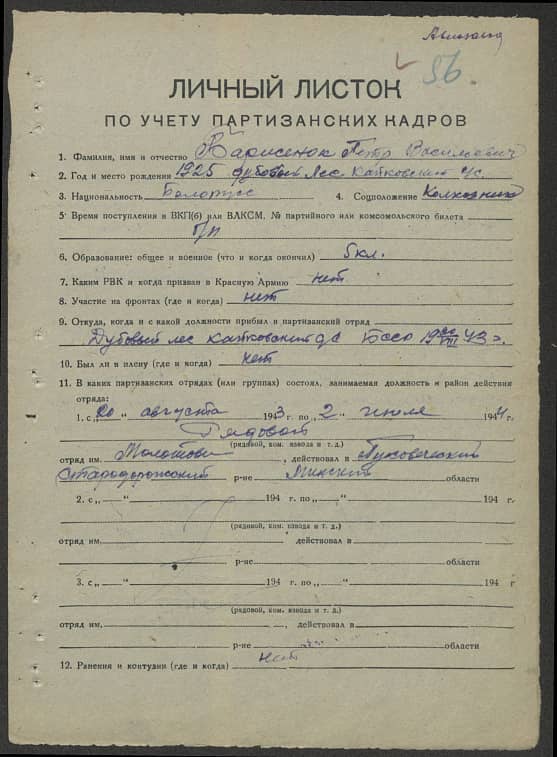 56
ЛИЧНЫЙ ЛИСТОК
ПО УЧЕТУ ПАРТИЗАНСКИХ КАДРОВ
1. Фамилия, имя и отчество Барисенок Петр Васильевич
2. Год и место рождения 1925 Дубовый Лес с/с.
3. Национальность Белорус 4. Соцположение Колхозник
5. Время поступления в ВКП(б) или ВЛКСМ, № партийного или комсомольского билета
б/п
6. Образование: общее и военное (что и когда окончил) 5 кл.
7. Каким РВК и когда призван в Красную Армию нет
8. Участие на фронтах (где и когда) нет
9. Откуда, когда и с какой должности прибыл в партизанский отряд
Дубовый лес 43 г.
10. Был ли в плену (где и когда) нет
11. В каких партизанских отрядах (или группах) состоял, занимаемая должность и район действия
отряда:
1. с „20“ августа 1943 г. по „2“ июля 1944 г.
Рядовой
(рядовой, ком. взвода и т. д.)
отряд им. Молотова, действовал в Пуховический
Стародорожский р-не Минский области
2. с „ “ 194 г. по „ “ 194 г.
(рядовой, ком. взвода и т. д.)
отряд им. , действовал в
р-не области
3. с „ “ 194 г. по „ “ 194 г
(рядовой, ком. взвода и т. д.)
отряд им. , действовал в
р-не области
12. Ранения и контузии (где и когда) нет